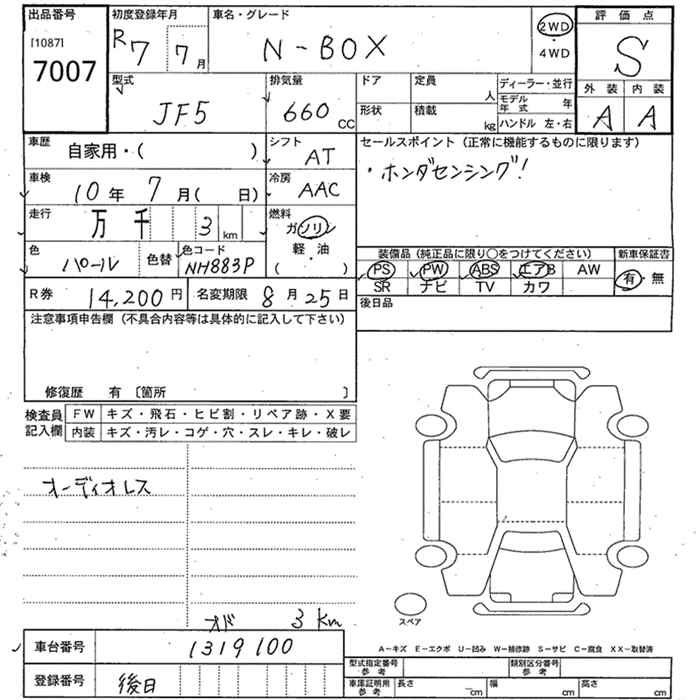 出品番号 初度登録年月 車名・グレード 評価点
[1087] R7 7月 N-BOX 2WD ・ 4WD S
7007 外装 内装
型式 排気量 ドア 定員 人 ディーラー・並行 A A
JF5 660 CC 形状 積載 kg モデル年式 年
ハンドル 左・右
車歴 自家用・( ) シフト AT セールスポイント (正常に機能するものに限ります)
・ホンダセンシング!
車検 10年 7月( 日) 冷房 AAC
走行 万 千 3 km 燃料 ガソリン 軽・油 ( ・ )
色 パール 色替 色コード NH883P 装備品 (純正品に限り○をつけてください) 新車保証書
PS PW ABS エアB AW 有・無
SR ナビ TV カワ
R券 14,200円 名変期限 8月25日 後日品
注意事項申告欄 (不具合内容等は具体的に記入して下さい)
修復歴 有 〔箇所 〕
検査員記入欄 FW キズ・飛石・ヒビ割・リペア跡・X要
内装 キズ・汚レ・コゲ・穴・スレ・キレ・破レ
オーディオレス
スペア
オド 3 Km
A−キズ E−エクボ U−凹み W−補修跡 S−サビ C−腐食 XX−取替済
車台番号 1319100 型式指定番号 参考 類別区分番号 参考
登録番号 後日 車庫証明用 参考 長さ cm 幅 cm 高さ cm